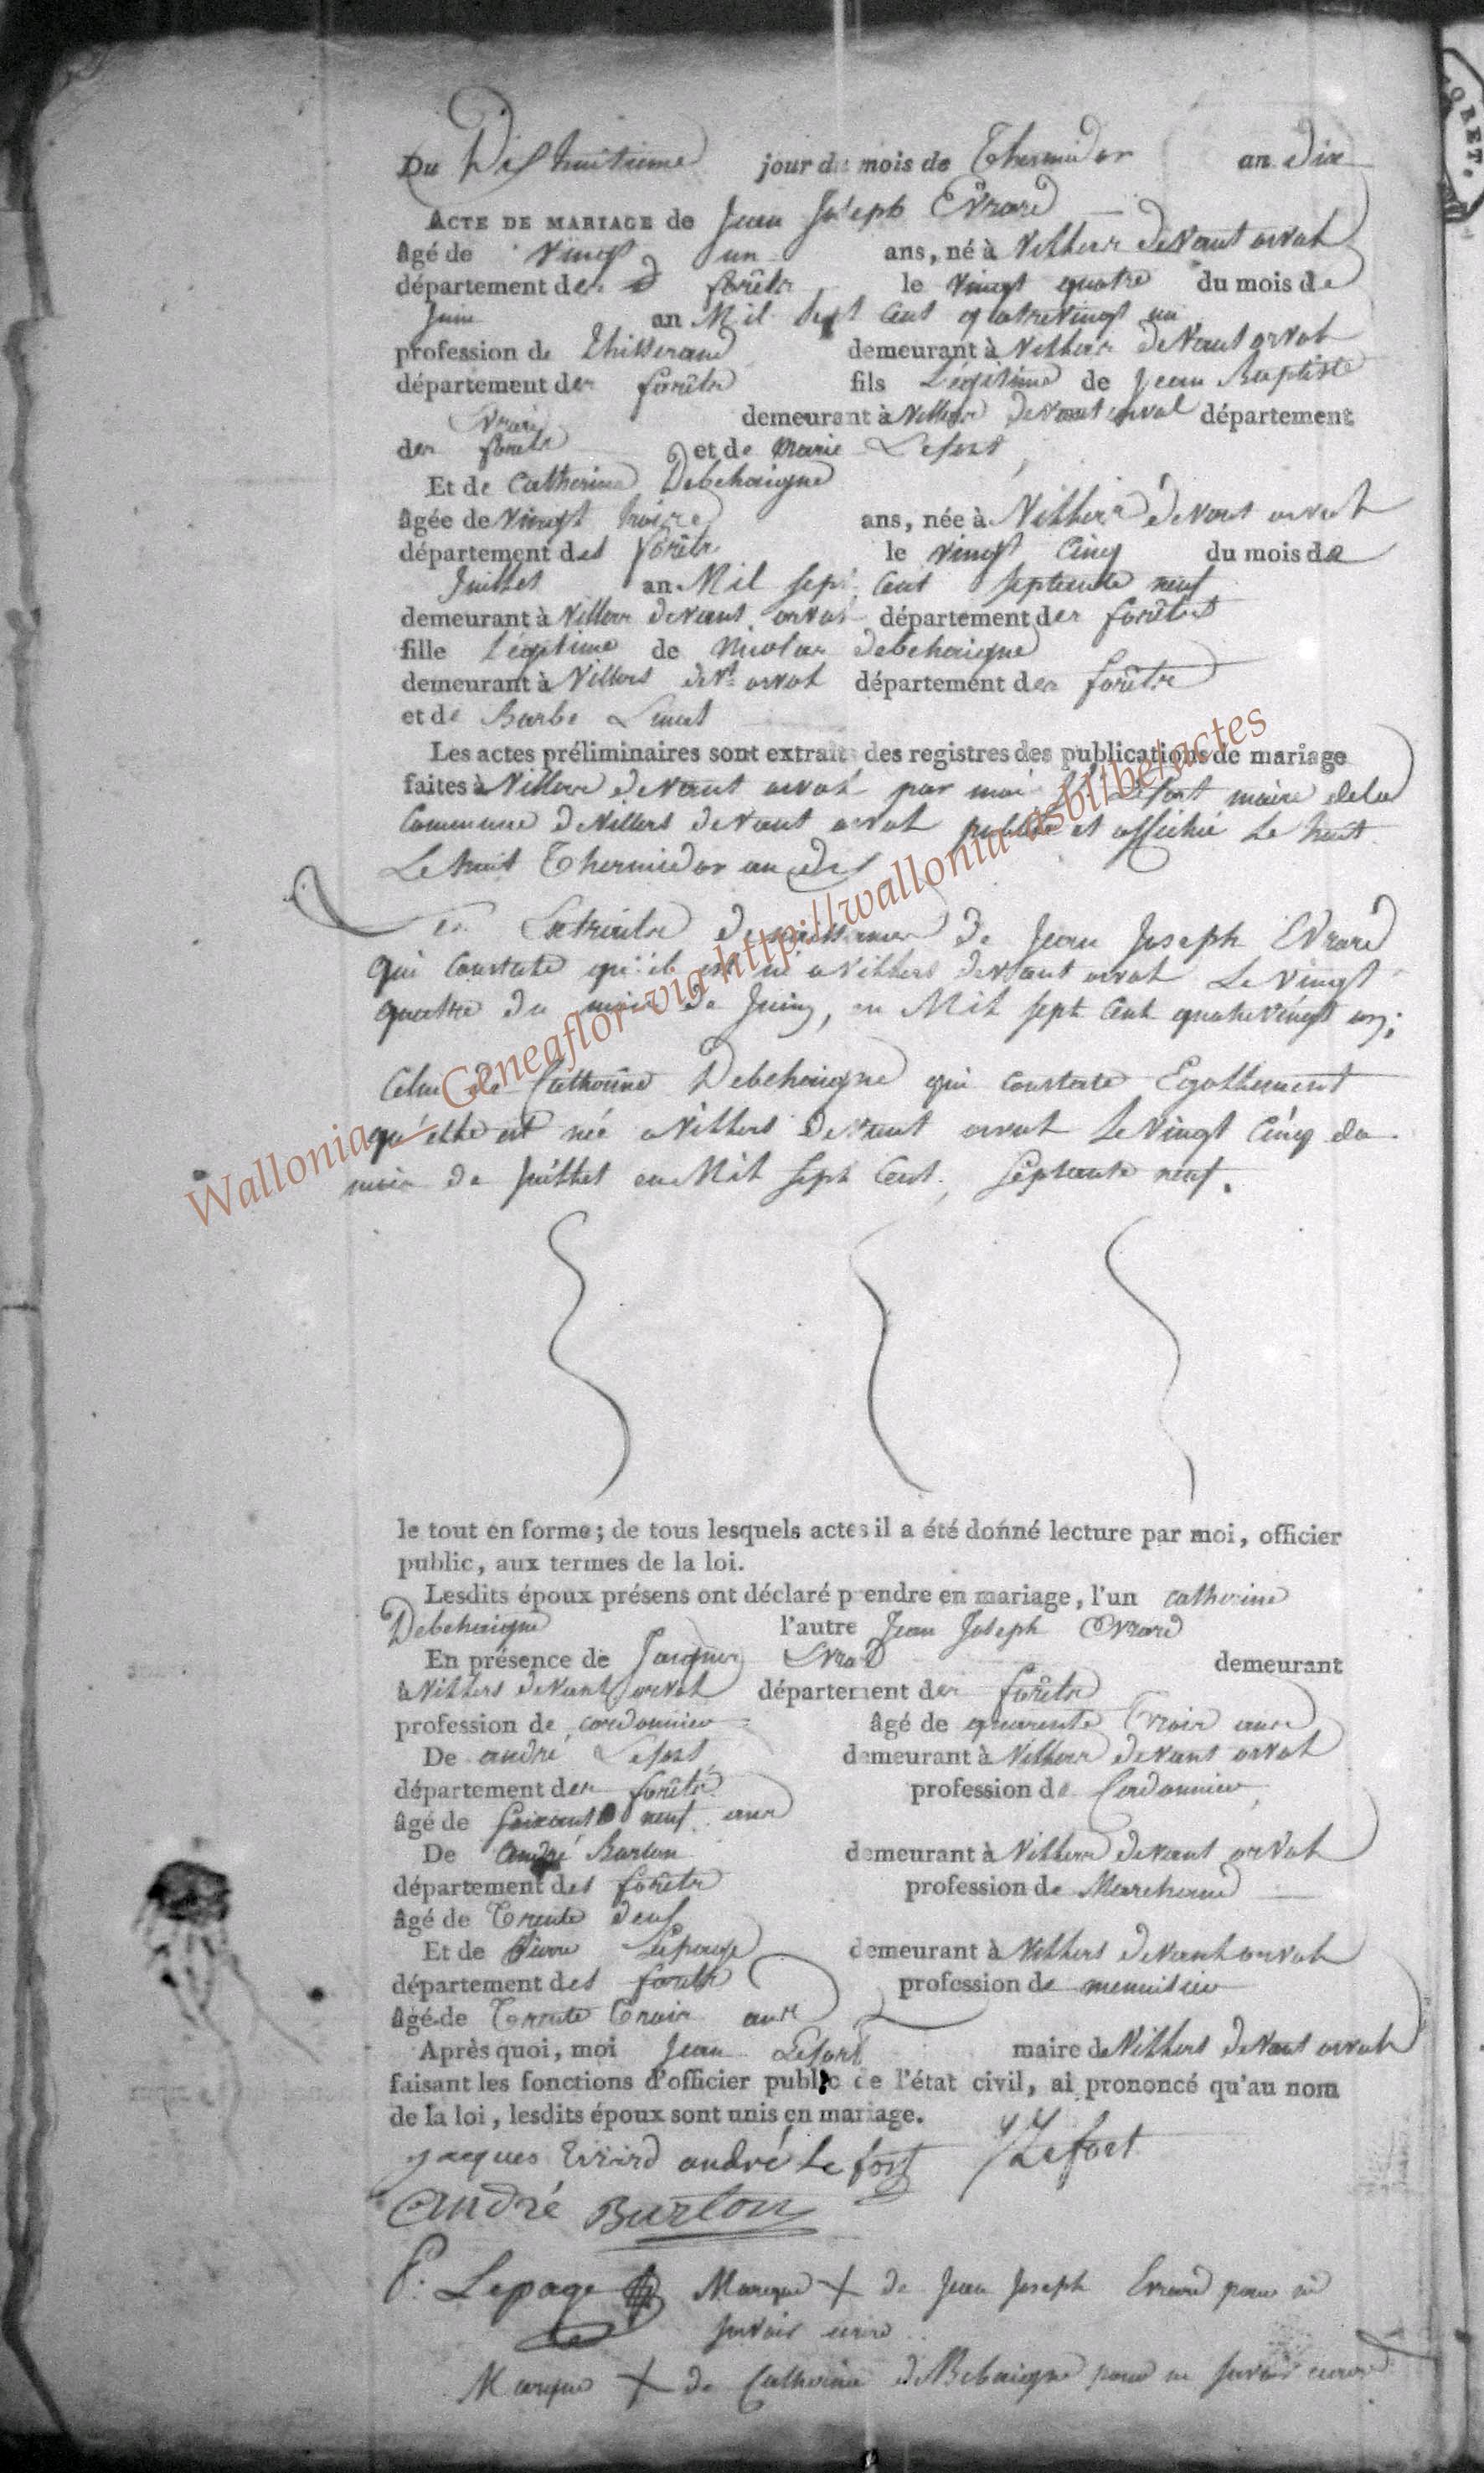 Du Dishuitieme jour du mois de Thermidor an dix
ACTE DE MARIAGE de Jean Joseph Evrard
âgé de vingt un ans, né à Villers devant orval
département des forêts le vingt quatre du mois de
Juin an Mil sept Cent quatrevingt un
profession de thisserand demeurant à Villers devant orval
département des forêts fils Légitime de Jean Baptiste
Evrard demeurant à Villers devant orval département
des forêts et de Marie Lefort
Et de Catherine Debehaigne
âgée de vingt trois ans, née à Villers devant orval
département des forêts le vingt Cinq du mois de
Juillet an Mil sept Cent septante neuf
demeurant à Villers devant orval département des forêts
fille Légitime de Nicolas Debehaigne
demeurant à Villers devt orval département des forêts
et de Barbe
Les actes préliminaires sont extraits des registres des publications de mariage
faites à Villers devant orval par moi Lefort maire dela
Commune de Villers devant orval publié et affiché Le huit
Le huit Thermidor an dis
Extraits de naissance de Jean Joseph Evrard
qui Constate qu'il est né a Villers devant orval Le vingt
quatre du mois de Juin, en Mil sept Cent quatrevingt un;
Celui de Catherine Debehaigne qui constate Egallement
qu'elle est née a Villers devant orval Le vingt Cinq du
mois de Juillet en Mil sept Cent, septante neuf.
le tout en forme; de tous lesquels actes il a été donné lecture par moi, officier
public, aux termes de la loi.
Lesdits époux présens ont déclaré prendre en mariage, l'un catherine
Debehaigne l'autre Jean Joseph Evrard
En présence de Jacques Evrard demeurant
à Villers devant orval département des forêts
profession de cordonnier âgé de quarente trois ans
De andré Lefort demeurant à Villers devant orval
département des forêts profession de Cordonnier
âgé de soixante neuf ans
De andré Burton demeurant à Villers devant orval
département des forêts profession de Marchand
âgé de Trente deus
Et de Pierre Lepage demeurant à Villers devant orval
département des forêts profession de menuisier
âgé de Trente Trois ans
Après quoi, moi Jean Lefort maire de Villers devant orval
faisant les fonctions d'officier public de l'état civil, ai prononcé qu'au nom
de la loi, lesdits époux sont unis en mariage.
jacques Evrard andré Le fort J Lefort
andré Burton
P. Lepage Marque + de Jean Joseph Evrard pour ne
savoir ecrire
Marque + de Catherine deBehaigne pour ne savoir ecrire
Wallonia - Geneaflor via http://wallonia-asbl/be/actes